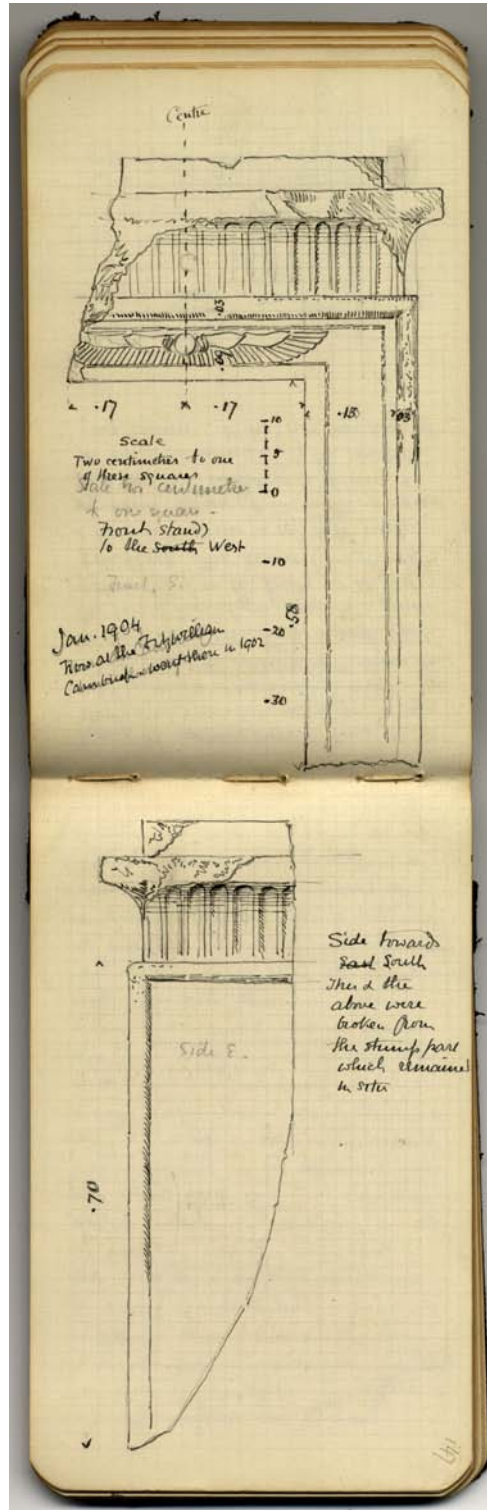 Centre
.03
.17
.17
.15
.03
Scale
Two centimetres to one
of these squares
Scale two centimetres
to one square.
Front stands
to the South West
10
5
0
10
20
30
.58
Jan. 1904
Now at the Fitzwilliam
Cambridge went there in 1902
Side towards
East South
This & the
above were
broken from
the stump part
which remained
in situ
Side E.
.70